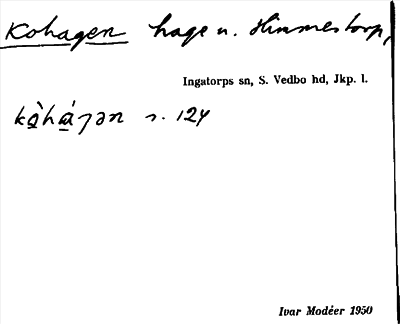 Kohagen hage u. Himmestorp,
Ingatorps sn, S. Vedbo hd, Jkp. l.
kò̱há̱ɡən s. 124
Ivar Modéer 1950